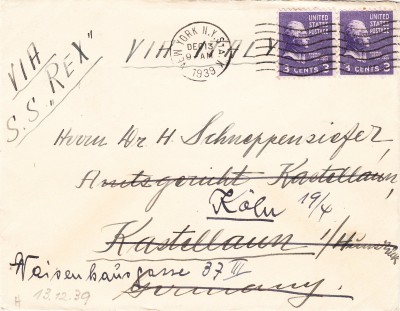 VIA
S.S. "REX"
VIA ITALY
NEW YORK, N.Y. STA. K
DEC 13
9 AM
1939
UNITED STATES POSTAGE
3 CENTS 3
UNITED STATES POSTAGE
3 CENTS 3
Herrn Dr H Schneppensiefer,
Amtsgericht Kastellaun,
Köln 19/4
Kastellaun i/Hunsrück
Waisenhausgasse 37 III
Germany.
H 13.12.39